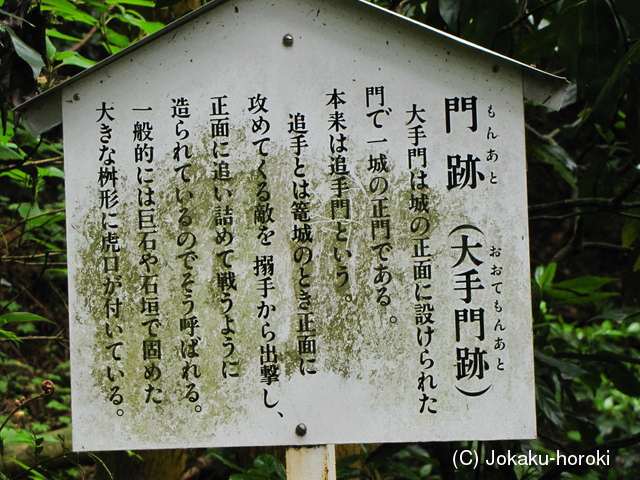 門跡（大手門跡）
もんあと
おおてもんあと
大手門は城の正面に設けられた
門で一城の正門である。
本来は追手門という。
追手とは篭城のとき正面に
攻めてくる敵を搦手から出撃し、
正面に追い詰めて戦うように
造られているのでそう呼ばれる。
一般的には巨石や石垣で固めた
大きな桝形に虎口が付いている。
(C) Jokaku-horoki